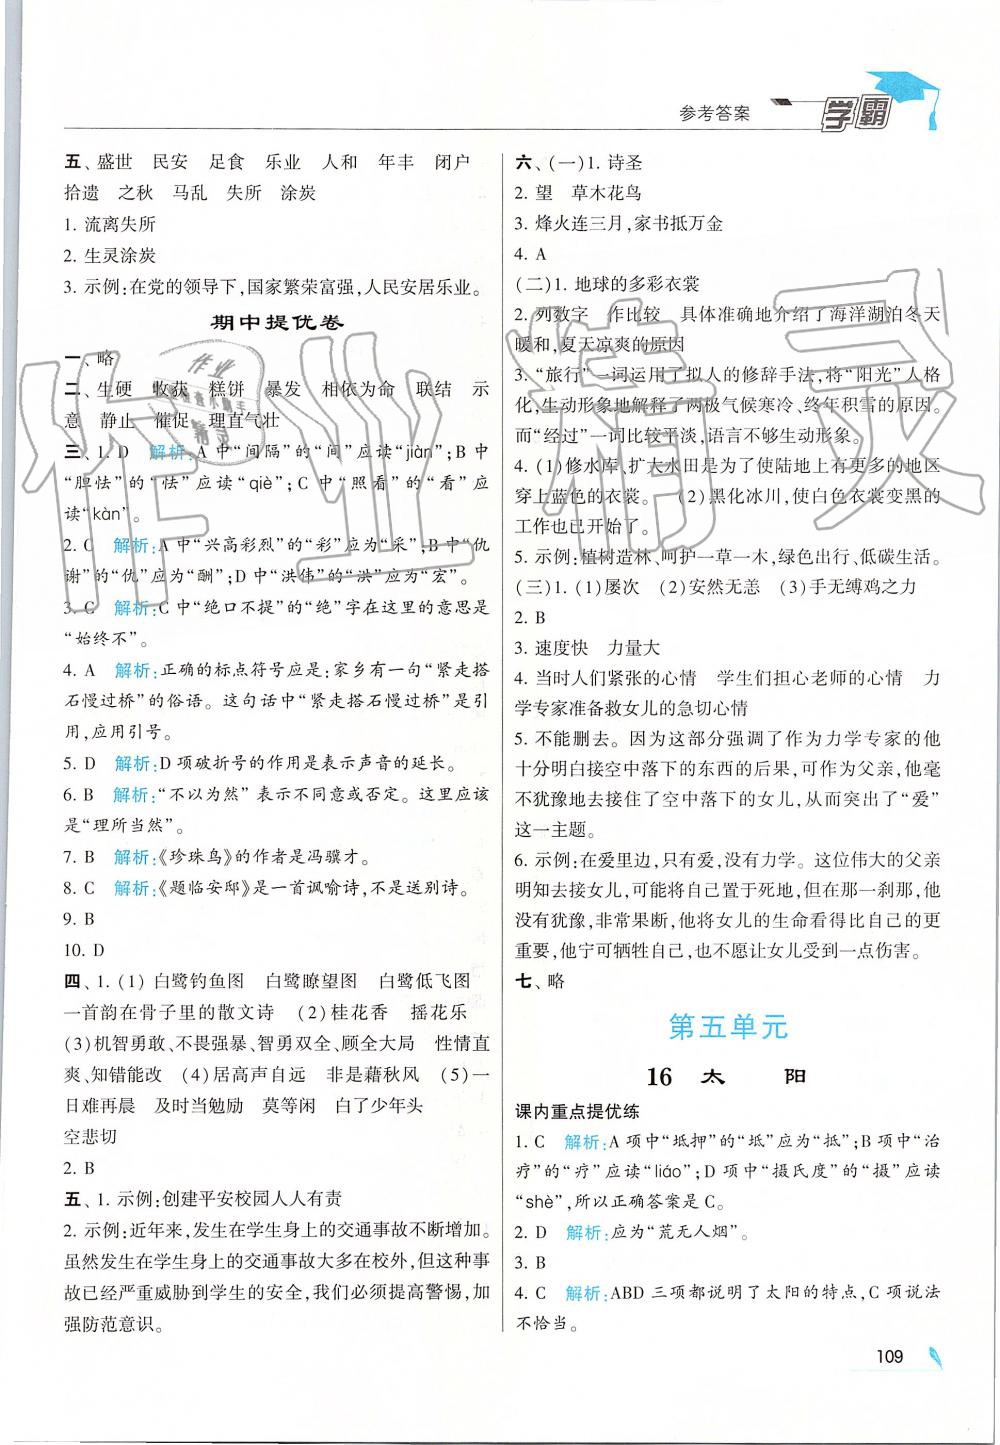 参考答案
学霸
五、盛世 民安 足食 乐业 人和 年丰 闭户
拾遗 之秋 马乱 失所 涂炭
1. 流离失所
2. 生灵涂炭
3. 示例:在党的领导下,国家繁荣富强,人民安居乐业。
期中提优卷
一、略
二、生硬 收获 糕饼 暴发 相依为命 联结 示
意 静止 催促 理直气壮
三、1. D 解析:A 中“间隔”的“间”应读“jiàn”;B 中
“胆怯”的“怯”应读“qiè”;C 中“照看”的“看”应
读“kān”。
2. C 解析:A 中“兴高彩烈”的“彩”应为“采”;B 中“仇
谢”的“仇”应为“酬”;D 中“洪伟”的“洪”应为“宏”。
3. C 解析:C 中“绝口不提”的“绝”字在这里的意思是
“始终不”。
4. A 解析:正确的标点符号应是:家乡有一句“紧走搭
石慢过桥”的俗语。这句话中“紧走搭石慢过桥”是引
用,应用引号。
5. D 解析:D 项破折号的作用是表示声音的延长。
6. B 解析:“不以为然”表示不同意或否定。这里应该
是“理所当然”。
7. B 解析:《珍珠鸟》的作者是冯骥才。
8. C 解析:《题临安邸》是一首讽喻诗,不是送别诗。
9. B
10. D
四、1. (1) 白鹭钓鱼图 白鹭瞭望图 白鹭低飞图
一首韵在骨子里的散文诗 (2)桂花香 摇花乐
(3)机智勇敢、不畏强暴、智勇双全、顾全大局 性情直
爽、知错能改 (4)居高声自远 非是藉秋风 (5)一
日难再晨 及时当勉励 莫等闲 白了少年头
空悲切
2. B
五、1. 示例:创建平安校园人人有责
2. 示例:近年来,发生在学生身上的交通事故不断增加。
虽然发生在学生身上的交通事故大多在校外,但这种事
故已经严重威胁到学生的安全,我们必须提高警惕,加
强防范意识。
六、(一)1. 诗圣
2. 望 草木花鸟
3. 烽火连三月,家书抵万金
4. A
(二)1. 地球的多彩衣裳
2. 列数字 作比较 具体准确地介绍了海洋湖泊冬天
暖和,夏天凉爽的原因
3. “旅行”一词运用了拟人的修辞手法,将“阳光”人格
化,生动形象地解释了两极气候寒冷、终年积雪的原因。
而“经过”一词比较平淡,语言不够生动形象。
4. (1)修水库、扩大水田是为了使陆地上有更多的地区
穿上蓝色的衣裳。 (2)黑化冰川,使白色衣裳变黑的
工作也已开始了。
5. 示例:植树造林、呵护一草一木,绿色出行、低碳生活。
(三)1. (1)屡次 (2)安然无恙 (3)手无缚鸡之力
2. B
3. 速度快 力量大
4. 当时人们紧张的心情 学生们担心老师的心情 力
学专家准备救女儿的急切心情
5. 不能删去。因为这部分强调了作为力学专家的他
十分明白接空中落下的东西的后果,可作为父亲,他毫
不犹豫地去接住了空中落下的女儿,从而突出了“爱”
这一主题。
6. 示例:在爱里边,只有爱,没有力学。这位伟大的父亲
明知去接女儿,可能将自己置于死地,但在那一刹那,他
没有犹豫,非常果断,他将女儿的生命看得比自己的更
重要,他宁可牺牲自己,也不愿让女儿受到一点伤害。
七、略
第五单元
16 太 阳
课内重点提优练
1. C 解析:A 项中“坻押”的“坻”应为“抵”;B 项中“治
疗”的“疗”应读“liáo”;D 项中“摄氏度”的“摄”应读
“shè”,所以正确答案是 C。
2. D 解析:应为“荒无人烟”。
3. B
4. C 解析:ABD 三项都说明了太阳的特点,C 项说法
不恰当。
109
作业精灵